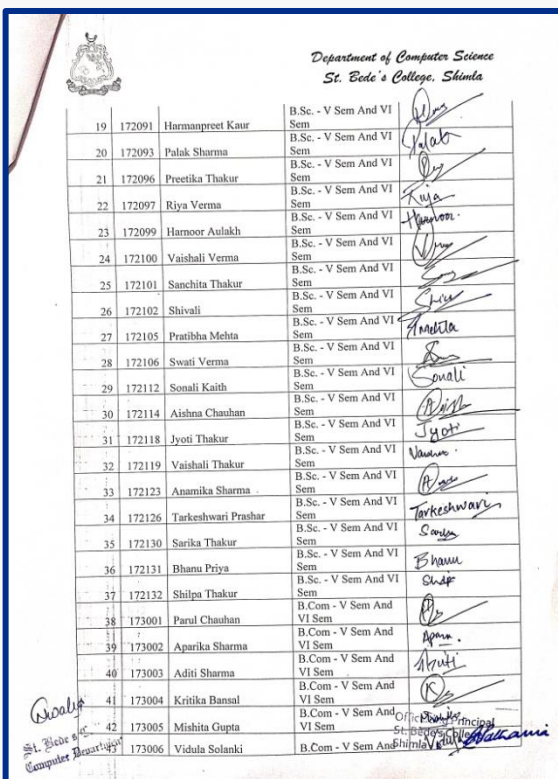 Department of Computer Science
St. Bede's College, Shimla
19 172091 Harmanpreet Kaur B.Sc. - V Sem And VI Sem
20 172093 Palak Sharma B.Sc. - V Sem And VI Sem Palak
21 172096 Preetika Thakur B.Sc. - V Sem And VI Sem
22 172097 Riya Verma B.Sc. - V Sem And VI Sem
23 172099 Harnoor Aulakh B.Sc. - V Sem And VI Sem Harnoor.
24 172100 Vaishali Verma B.Sc. - V Sem And VI Sem
25 172101 Sanchita Thakur B.Sc. - V Sem And VI Sem
26 172102 Shivali B.Sc. - V Sem And VI Sem
27 172105 Pratibha Mehta B.Sc. - V Sem And VI Sem
28 172106 Swati Verma B.Sc. - V Sem And VI Sem
29 172112 Sonali Kaith B.Sc. - V Sem And VI Sem Sonali
30 172114 Aishna Chauhan B.Sc. - V Sem And VI Sem
31 172118 Jyoti Thakur B.Sc. - V Sem And VI Sem Jyoti
32 172119 Vaishali Thakur B.Sc. - V Sem And VI Sem
33 172123 Anamika Sharma B.Sc. - V Sem And VI Sem
34 172126 Tarkeshwari Prashar B.Sc. - V Sem And VI Sem Tarkeshwari
35 172130 Sarika Thakur B.Sc. - V Sem And VI Sem
36 172131 Bhanu Priya B.Sc. - V Sem And VI Sem Bhanu
37 172132 Shilpa Thakur B.Sc. - V Sem And VI Sem
38 173001 Parul Chauhan B.Com - V Sem And VI Sem
39 173002 Aparika Sharma B.Com - V Sem And VI Sem
40 173003 Aditi Sharma B.Com - V Sem And VI Sem
41 173004 Kritika Bansal B.Com - V Sem And VI Sem
42 173005 Mishita Gupta B.Com - V Sem And VI Sem
173006 Vidula Solanki B.Com - V Sem And
Principal
St. Bede's College
Shimla
St. Bede's
Computer Department